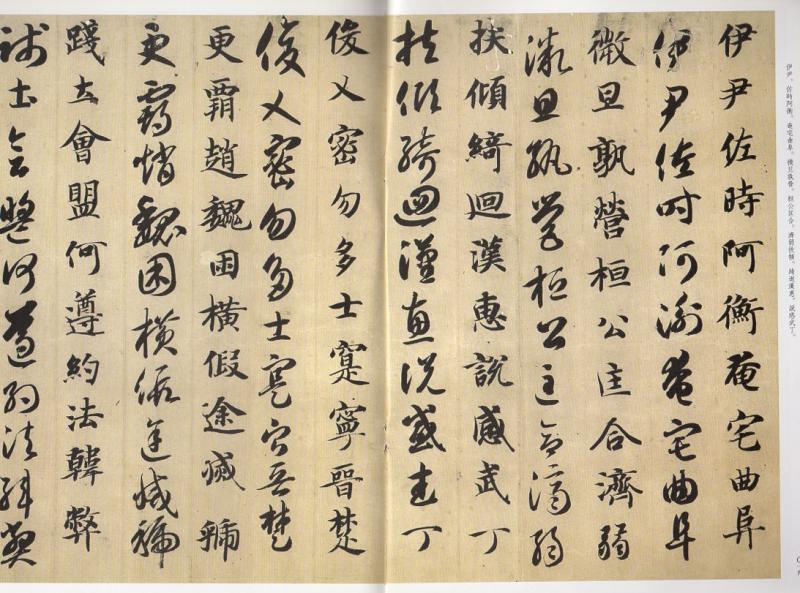 伊尹。佐時阿衡。奄宅曲阜。微旦孰營。桓公匡合。濟弱扶傾。綺迴漢惠。説感武丁。
伊尹佐時阿衡奄宅曲阜
伊尹佐時阿衡奄宅曲阜
微旦孰營桓公匡合濟弱
微旦孰營桓公匡合濟弱
扶傾綺迴漢惠說感武丁
扶傾綺迴漢惠說感武丁
俊乂密勿多士寔寧晉楚
俊乂密勿多士寔寧晉楚
更霸趙魏困橫假途滅虢
更霸趙魏困橫假途滅虢
踐土會盟何遵約法韓弊
踐土會盟何遵約法韓弊